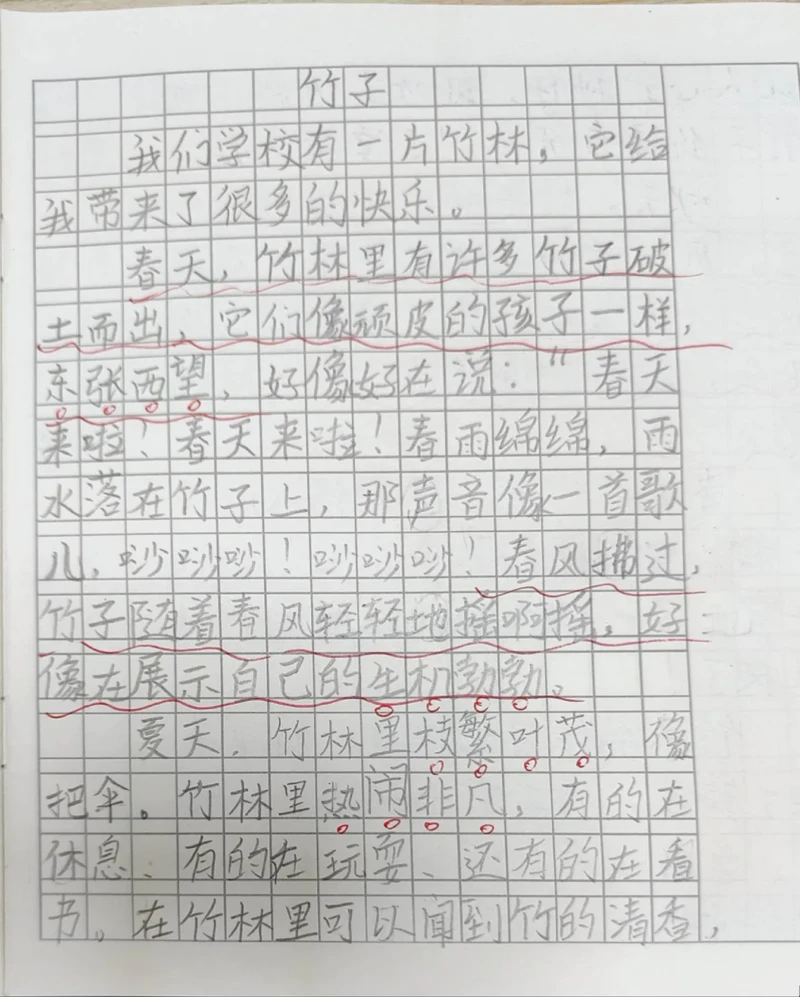 竹子
我们学校有一片竹林，它给
我带来了很多的快乐。
春天，竹林里有许多竹子破
土而出，它们像顽皮的孩子一样，
东张西望，好像好在说："春天
来啦！春天来啦！春雨绵绵，雨
水落在竹子上，那声音像一首歌
儿，唦唦唦！唦唦唦！春风拂过，
竹子随着春风轻轻地摇啊摇，好
像在展示自己的生机勃勃。
夏天，竹林里枝繁叶茂，像
把伞。竹林里热闹非凡，有的在
休息、有的在玩耍、还有的在看
书。在竹林里可以闻到竹的清香，